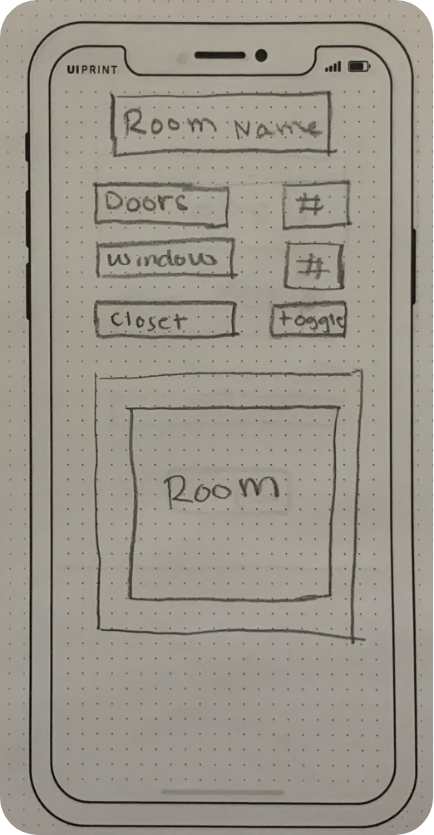 UIPRINT
Room Name
Doors #
Window #
Closet toggle
Room